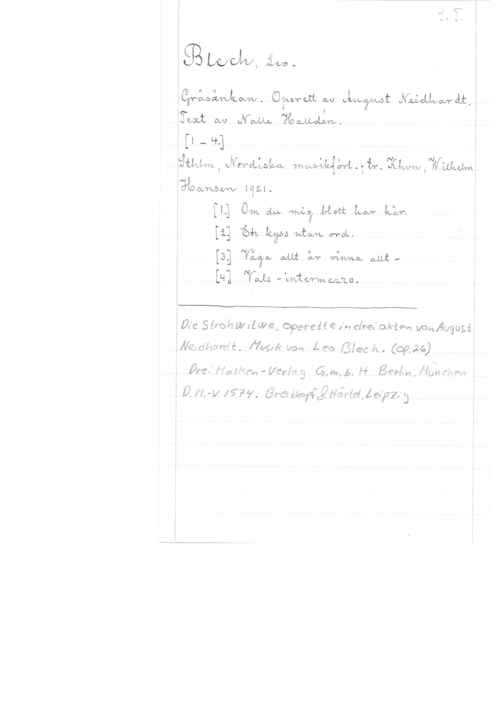 Blech, Leo.
Gräsänkan. Operett av August Neidhardt.
Text av Nalle Halldén.
[1 - 4.]
Sthlm, Nordiska musikförl.; tr. Khvn, Wilhelm
Hansen 1921.
[1.] Om du mig blott har kär.
[2.] En kyss utan ord.
[3.] Våga allt är vinna allt -
[4.] Vals - intermezzo.
Die Strohwitwe, operette in drei akten von August
Neidhardt. Musik von Leo Blech. (op.26)
Drei Masken - Verlag G.m.b.H Berlin, München
D.M.-V 1574. Breitkopf & Härtel, Leipzig